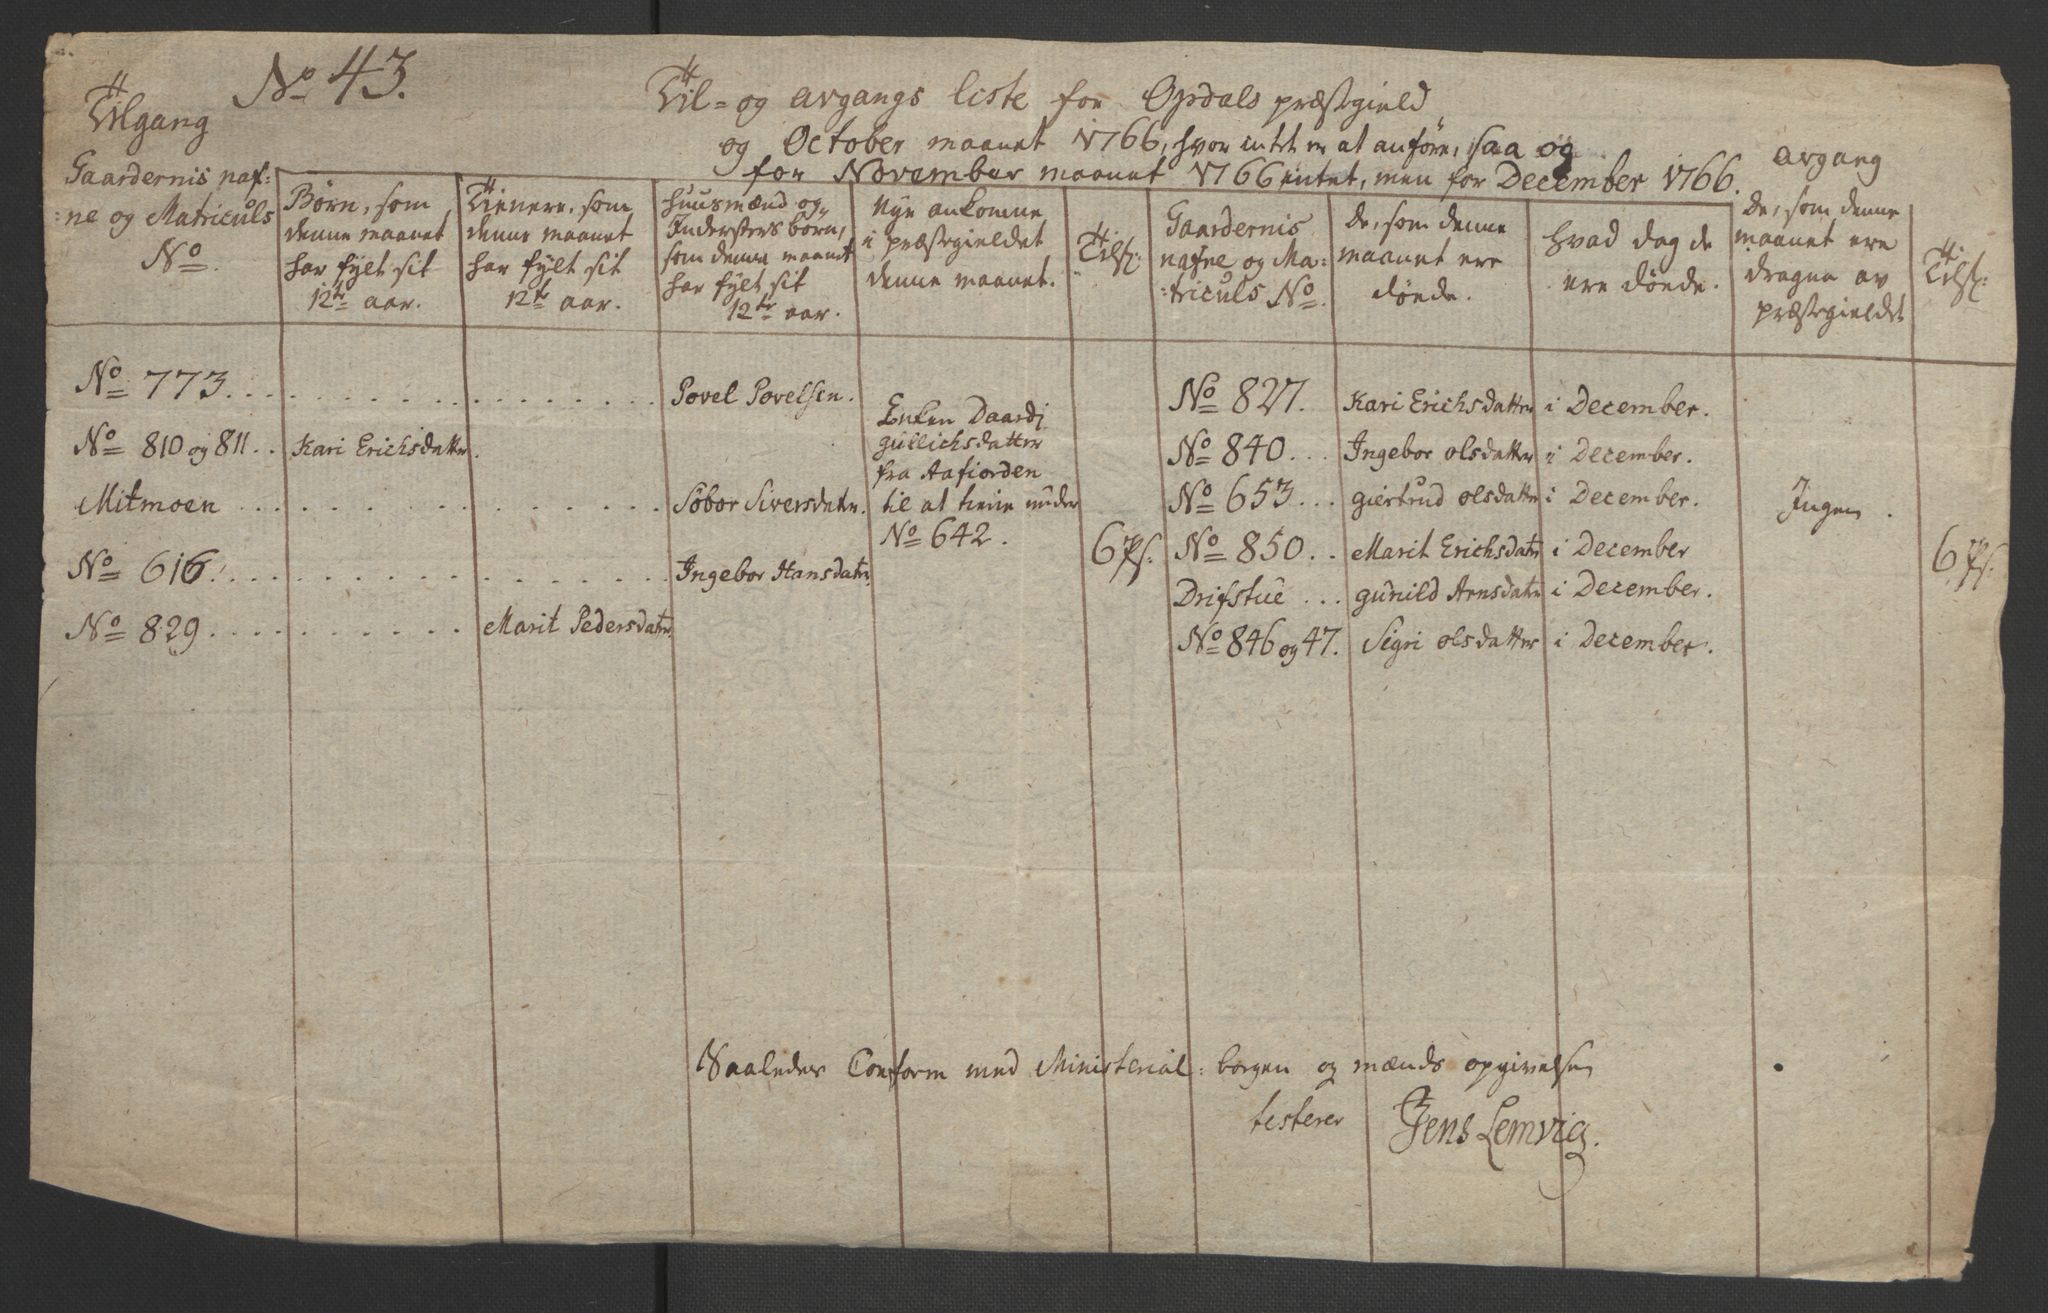 No 43.
Tilgang
Til- og avgangs liste for Opdals præstegield
og October maanet 1766, hvor intet er at anføre, saa og
for November maanet 1766 intet, men for December 1766.
avgang
Gaardernis naf-
ne og Matriculs
No
Børn, som
denne maanet
har fylt sit
12te aar.
Tienere, som
denne maanet
har fylt sit
12te aar.
Huusmænd og
Indersters børn,
som denne maanet
har fylt sit
12te aar.
Nye ankomne
i præstegieldet
denne maanet.
Tilsf:
Gaardernis
nafne og Ma-
triculs No.
De, som denne
maanet ere
døede.
Hvad dag de
ere døede.
De, som denne
maanet ere
dragne av
præstegieldet
Tilsf:
No 773. Povel Povelsen.
No 810 og 811. Kari Erichsdatter.
Mitmoen Søbor Siversdatr.
No 616. Ingebor Hansdatr.
No 829. Marit Pedersdatr
Enken Daardj
gullichsdatter
fra Aafiorden
til at tiene under
No 642.
6 Ps.
No 827. Kari Erichsdatter i December.
No 840. Ingebor olsdatter i December.
No 653. giertrud olsdatter i December.
No 850. Marit Erichsdatr i December
Drifstue gunild Arnsdatr i December.
No 846 og 47. Sigri olsdatter i December.
Ingen.
6 Ps.
Saaledes Conform med Ministerial-bogen og mænds opgivelse
testerer Jens Lemvig.